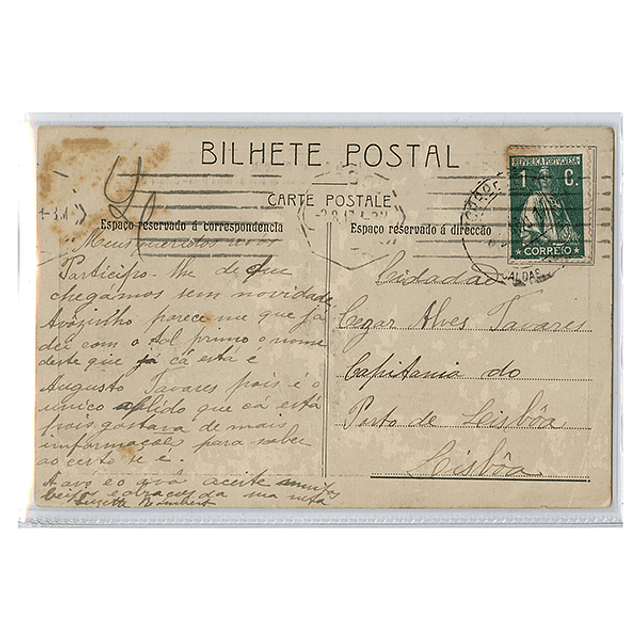 BILHETE POSTAL
CARTE POSTALE
REPUBLICA PORTUGUESA
1 C.
CORREIO
CALDAS
Espaço reservado á correspondencia
Meus queridos avós
Participo-lhe de que
chegamos sem novidade,
Avôzinho parece me que já
dei com o tal primo o nome
deste que já cá está é
Augusto Tavares pois é o
unico aplido que cá está
pois gostava de mais
informações para saber
ao certo se é.
A avó e o avô aceite muitos
beijos e abraços da sua neta
Espaço reservado á direcção
Cidadão
Cezar Alves Tavares
Capitania do
Porto de Lisbôa
Lisbôa